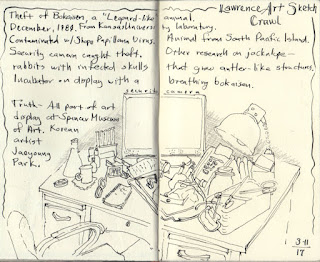 Theft of Bokaisen, a "Leopard-like
December, 1980. From Kansas University
Contaminated w/ Shope Papilloma Virus.
Security camera caught theft,
rabbits with infected skulls
Incubator on display with a
security camera
Truth- All part of art
display at Spencer Museum
of Art. Korean
artist
Jaeyoung
Park..
Lawrence Art Sketch
Crawl
animal,
laboratory.
Animal from South Pacific Island.
Other research on jackalope-
that grow antler-like structures,
breathing bokaisen.
3-11
17